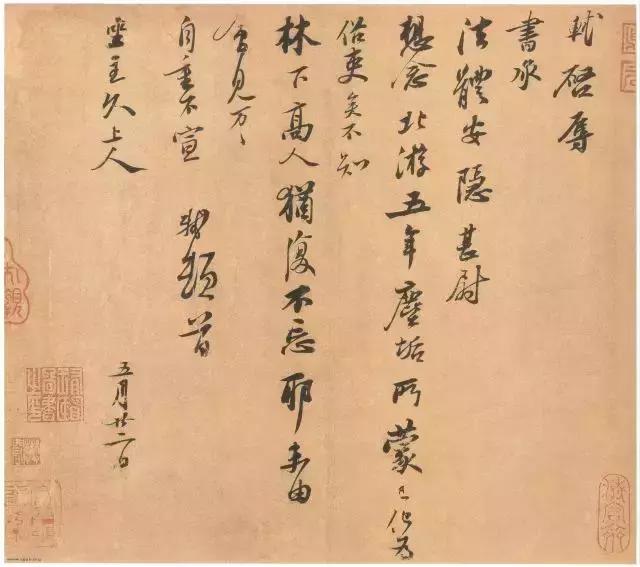 軾啓辱
書承
法體安隱甚尉
想念北游五年塵垢所蒙已化爲
俗吏矣不知
林下高人猶復不忘耶未由
會見万〻
自重不宣　軾頓首
坐主久上人
五月廿二日